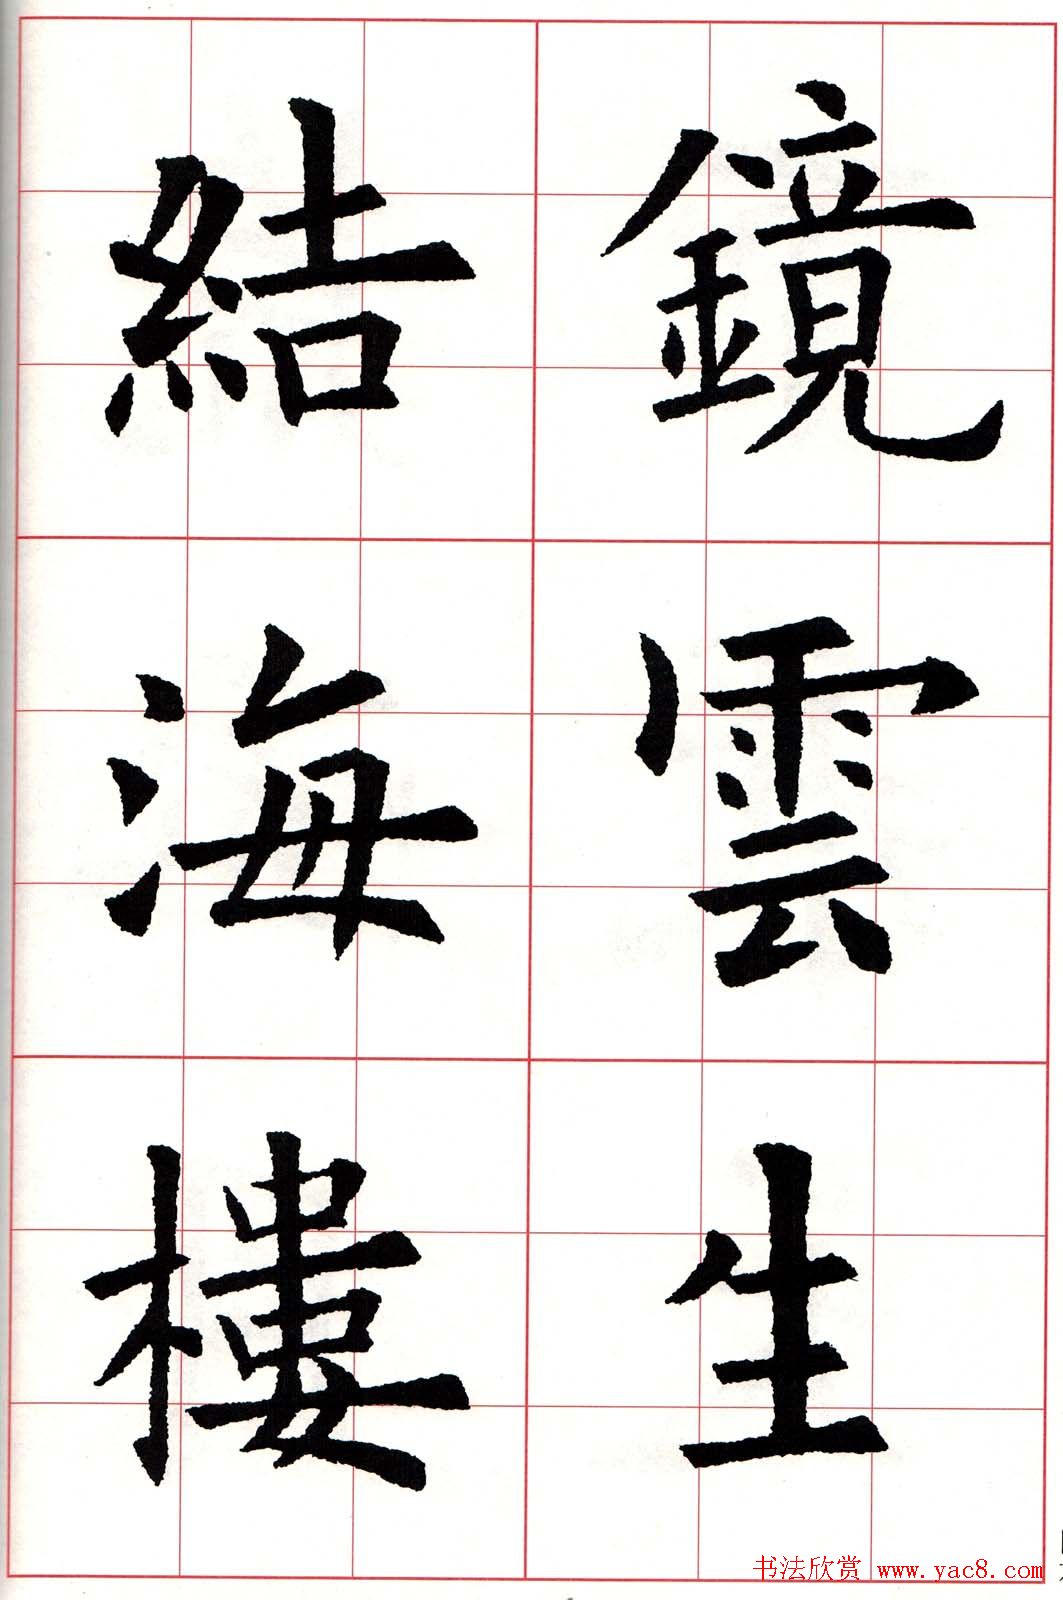 鏡雲生
結海樓
书法欣赏 www.yac8.com